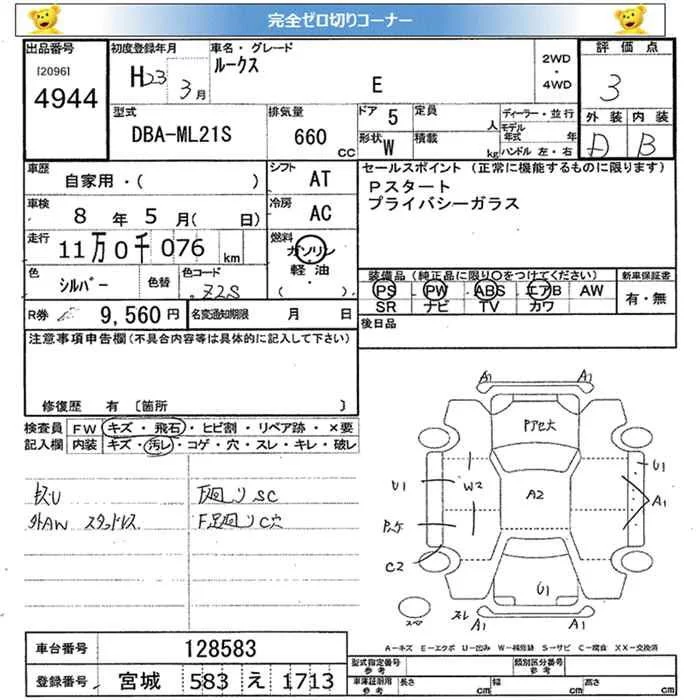 完全ゼロ切りコーナー
出品番号
[2096]
4944
初度登録年月
H23 3月
車名・グレード
ルークス
E
2WD
・
4WD
評価点
3
外装 内装
D B
型式
DBA-ML21S
排気量
660
CC
ドア 5
形状 W
定員 人
積載 kg
ディーラー・並行
モデル年式 年
ハンドル 左・右
車歴
自家用・( )
車検
8 年 5 月( 日)
走行
11万0千076 km
色
シルバー
色替
色コード
Z2S
シフト
AT
冷房
AC
燃料
ガソリン
軽・油
( )
R券 9,560 円
名変通知期限 月 日
セールスポイント (正常に機能するものに限ります)
Pスタート
プライバシーガラス
装備品(純正品に限り○をつけてください) 新車保証書
PS PW ABS エアB AW
SR ナビ TV カワ
有・無
後日品
注意事項申告欄(不具合内容等は具体的に記入して下さい)
修復歴 有 〔箇所 〕
検査員
記入欄
FW キズ・飛石・ヒビ割・リペア跡・×要
内装 キズ・汚レ・コゲ・穴・スレ・キレ・破レ
キズU
外AW スタッドレス
F廻りSC
F足廻りC穴
A1 A1
Pアセ大
U1
W2
A2
U1
A1
C2
U1
スペア
ズレ
A1 A1
A=キズ E=エクボ U=凹み W=補修跡 S=サビ C=腐食 XX=交換済
車台番号 128583
登録番号 宮城 583 え 1713
型式指定番号
参考
類別区分番号
参考
車庫証明用
参考
長さ cm
幅 cm
高さ cm